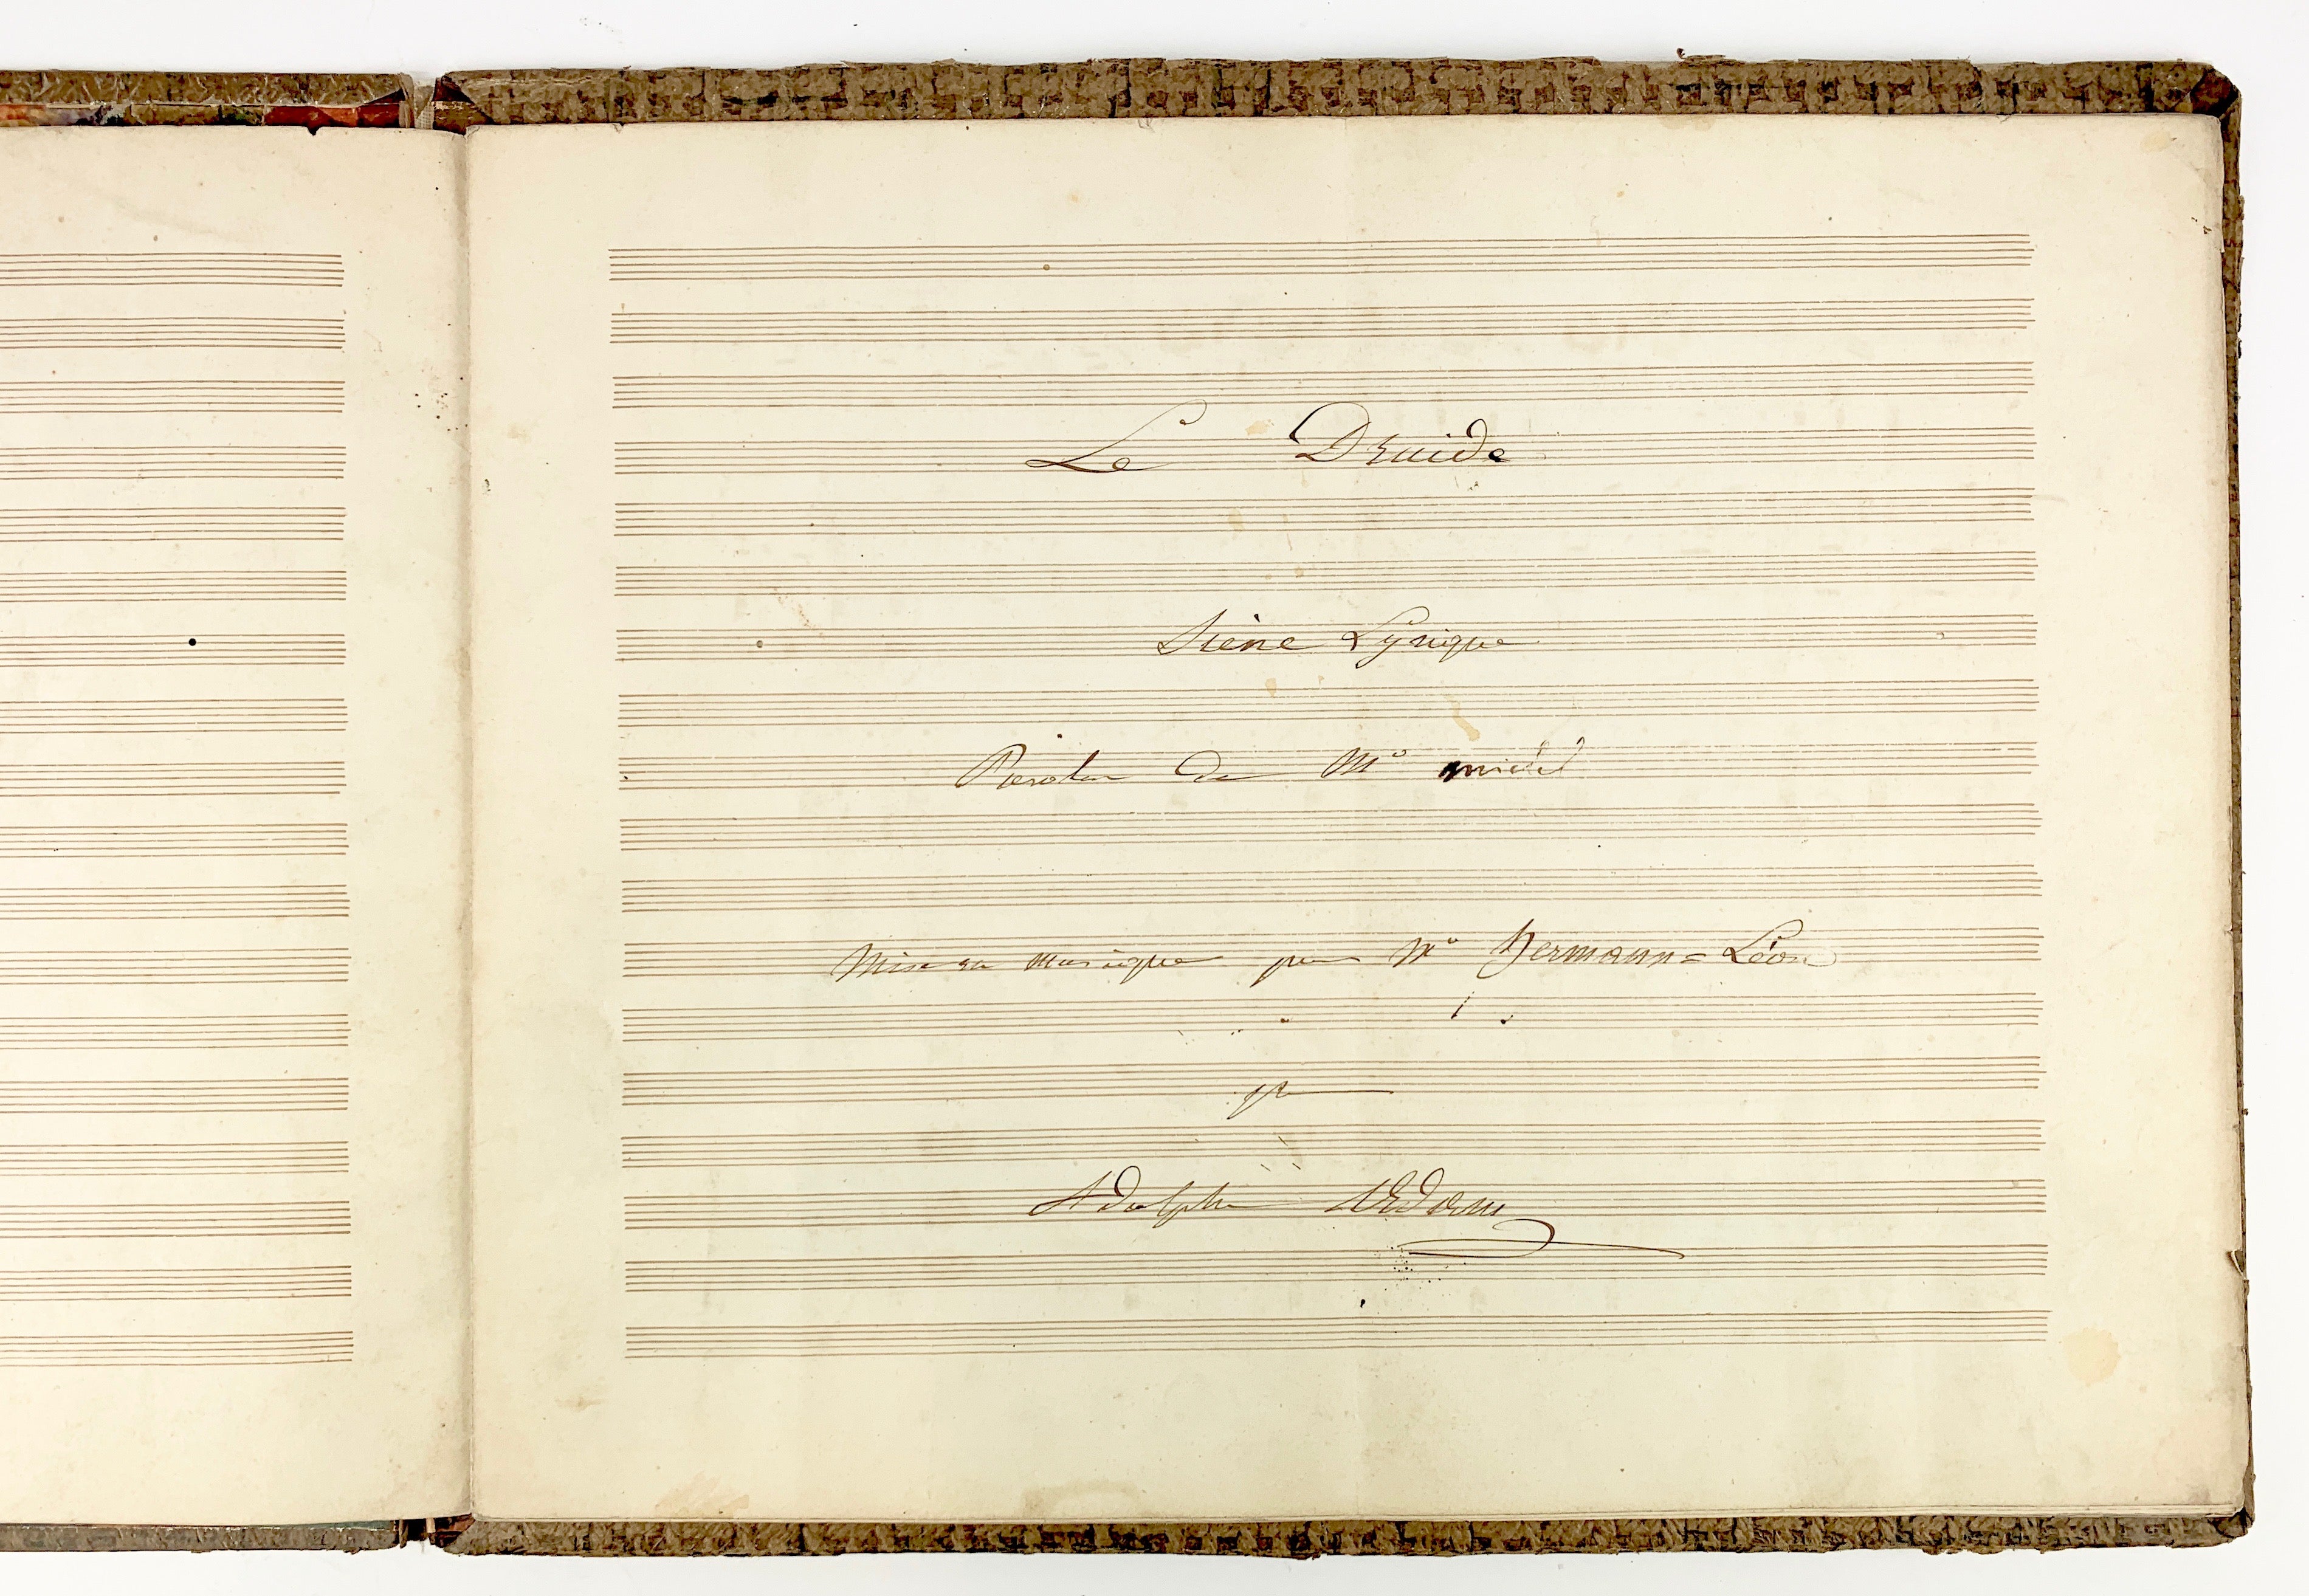 Le Druide
Scène Lyrique
Paroles de Mr
Mise en musique pour Mr Hermann=Léon
par
Adolphe